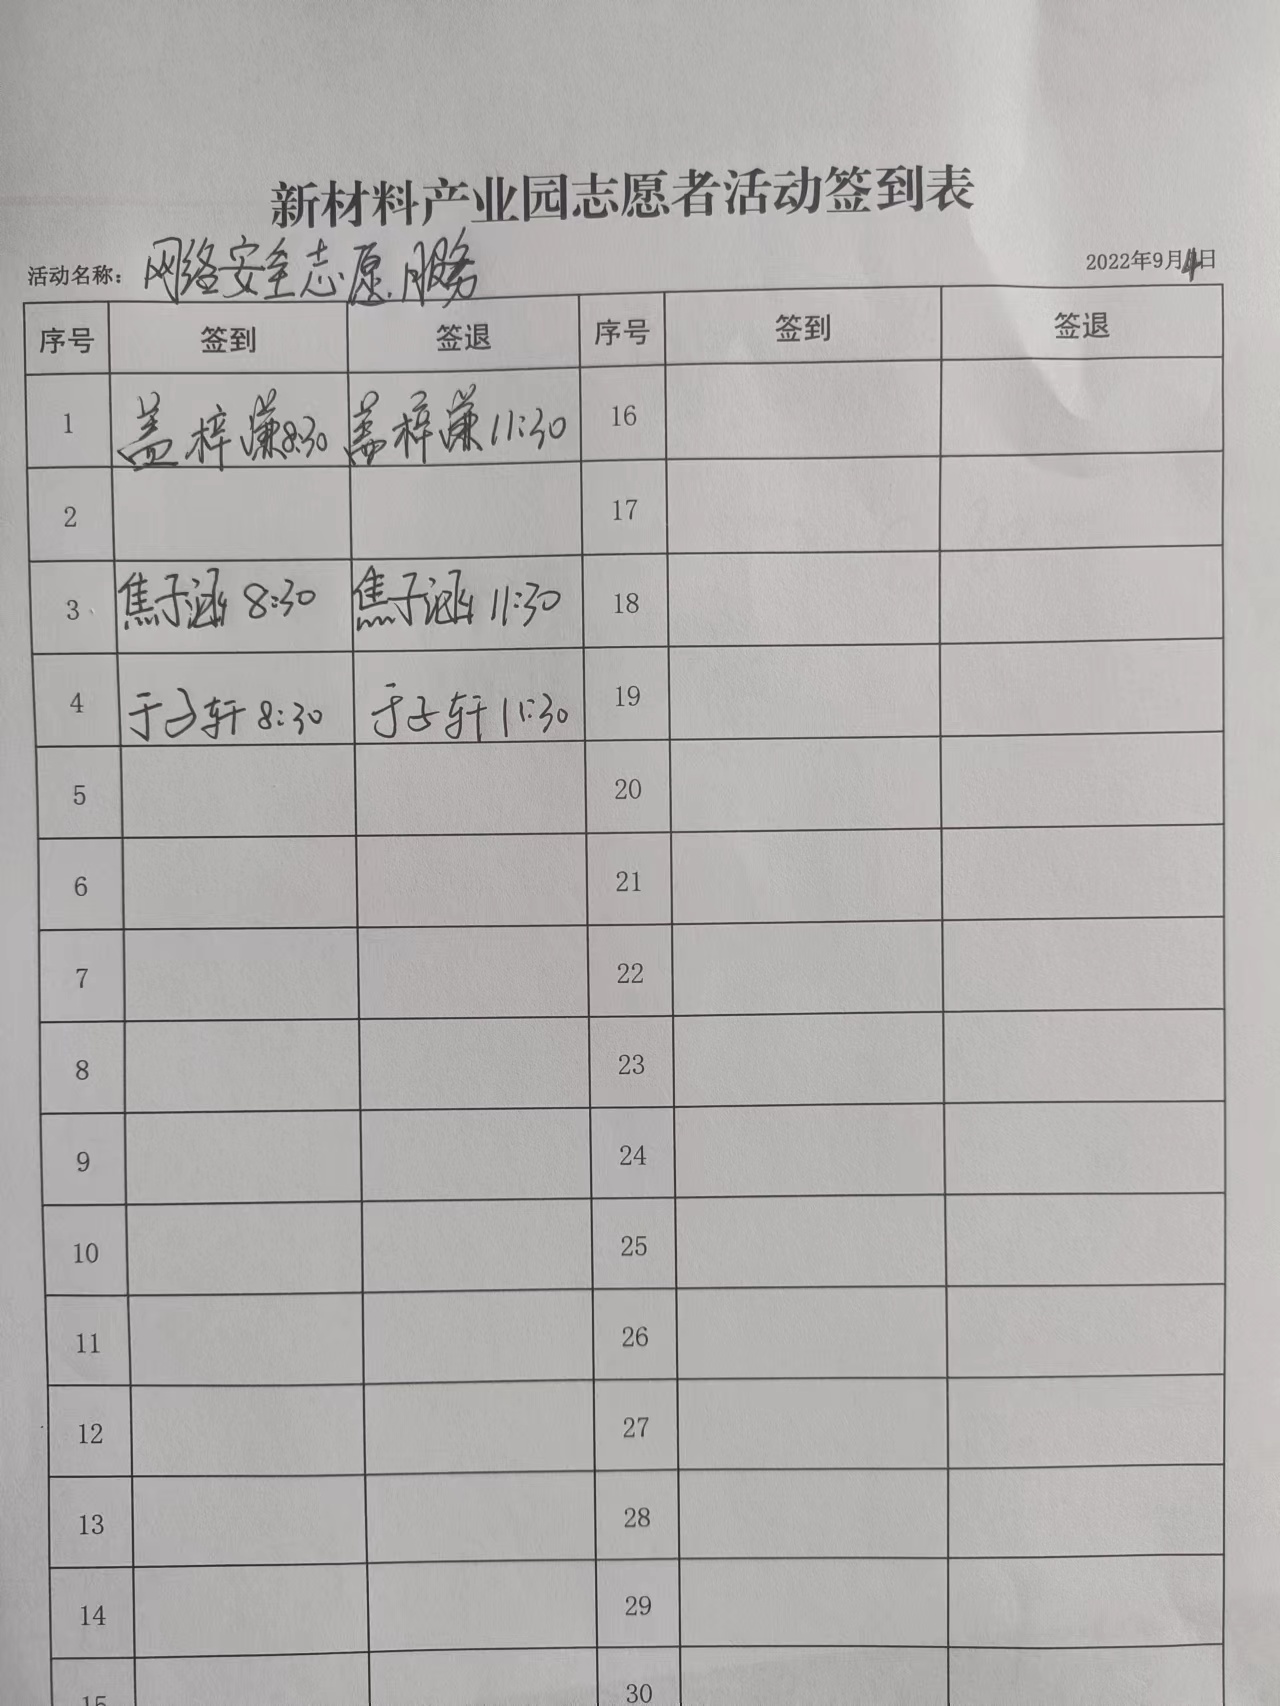 新材料产业园志愿者活动签到表
活动名称：网络安全志愿服务 2022年9月4日
序号 签到 签退 序号 签到 签退
1 盖梓濂8:30 盖梓濂11:30 16
2 17
3 焦子涵 8:30 焦子涵 11:30 18
4 于子轩 8:30 于子轩 11:30 19
5 20
6 21
7 22
8 23
9 24
10 25
11 26
12 27
13 28
14 29
15 30